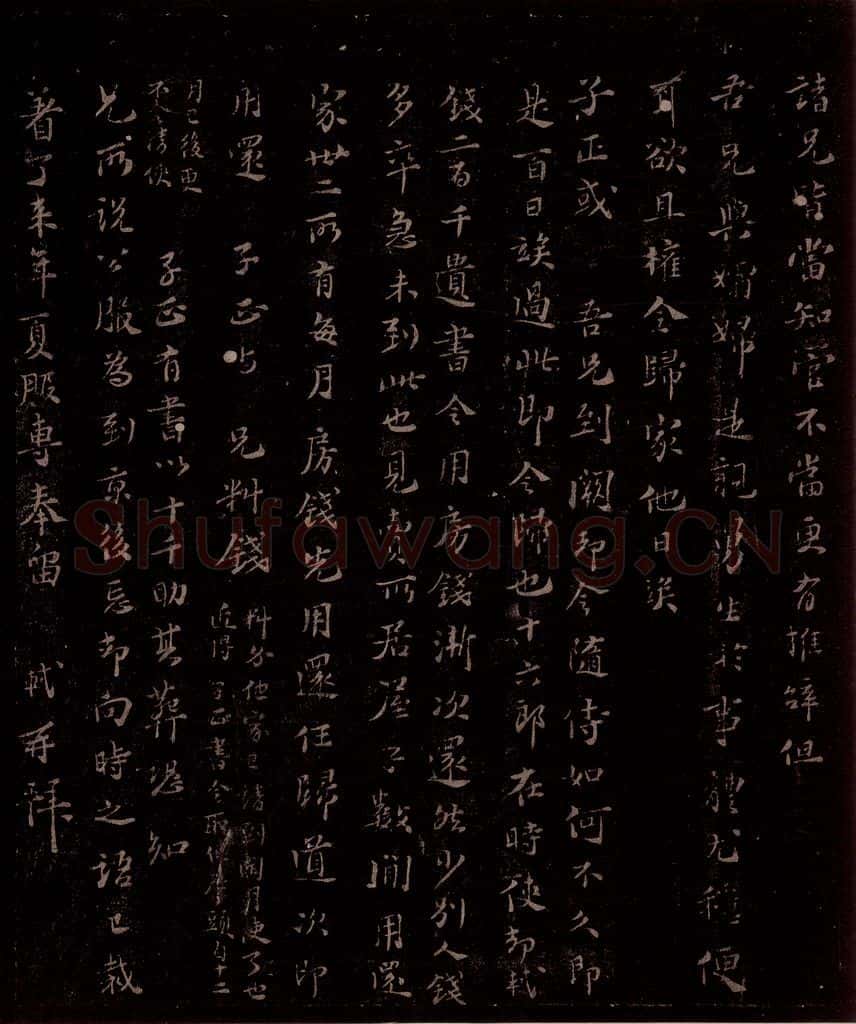 諸兄皆當知官不當更有推辭但
吾兄與嫂婦是親男生於事體尤穩便
可欲且權令歸家他日候
子正或 吾兄到闕却令隨侍如何不久即
是百日候過此即令歸也十六郎在時使却軾
錢二百千遺書令用房錢漸次還然少別人錢
多卒急未到此也見賣所居屋子數間用還
家世二所有每月房錢先用還任歸道次即
用還 子正與 兄料錢
料分他家已請到閏月使了也
近得子正書令取他房頭自十二
月已後更
不請使
子正有書以十千助其葬堪知
兄所說公服為到京後忘却向時之語已裁
著了來年夏服專奉留 軾再拜
Shufawang.CN